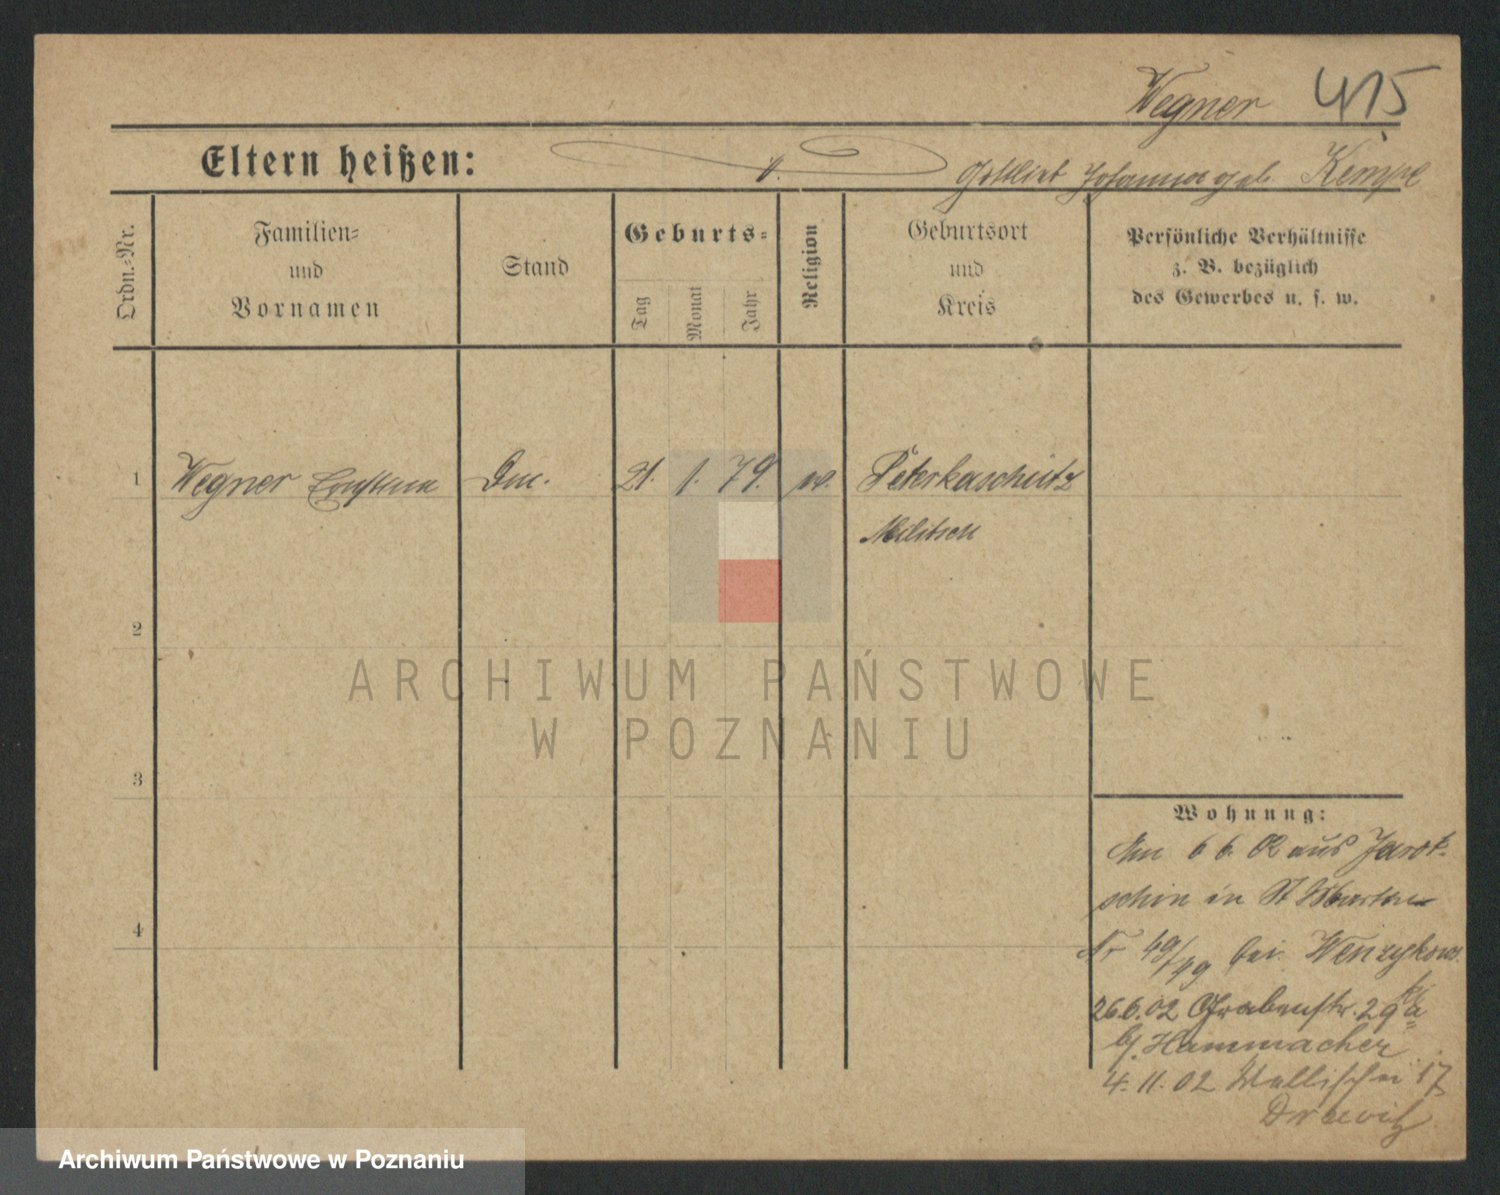 Wegner 415
Eltern heißen: Gottlieb Johanna geb. Kempe
Ordn.-Nr.
Familien-
und
Vornamen
Stand
Geburts-
Tag
Monat
Jahr
Religion
Geburtsort
und
Kreis
Persönliche Verhältnisse
z. B. bezüglich
des Gewerbes u. s. w.
1 Wegner Ernstina 21. 1. 79. ev. Peterkaschütz
Militsch
2
3
4
Wohnung:
Am 6 6. 02 aus Jarot-
schin in St Martin
Nr 48/49 bei Wenzykows
ki
26.6.02 Grabenstr. 29a
b/. Hammacher
4. 11. 02 Wallischei 17
Drewitz
ARCHIWUM PAŃSTWOWE
W POZNANIU
Archiwum Państwowe w Poznaniu